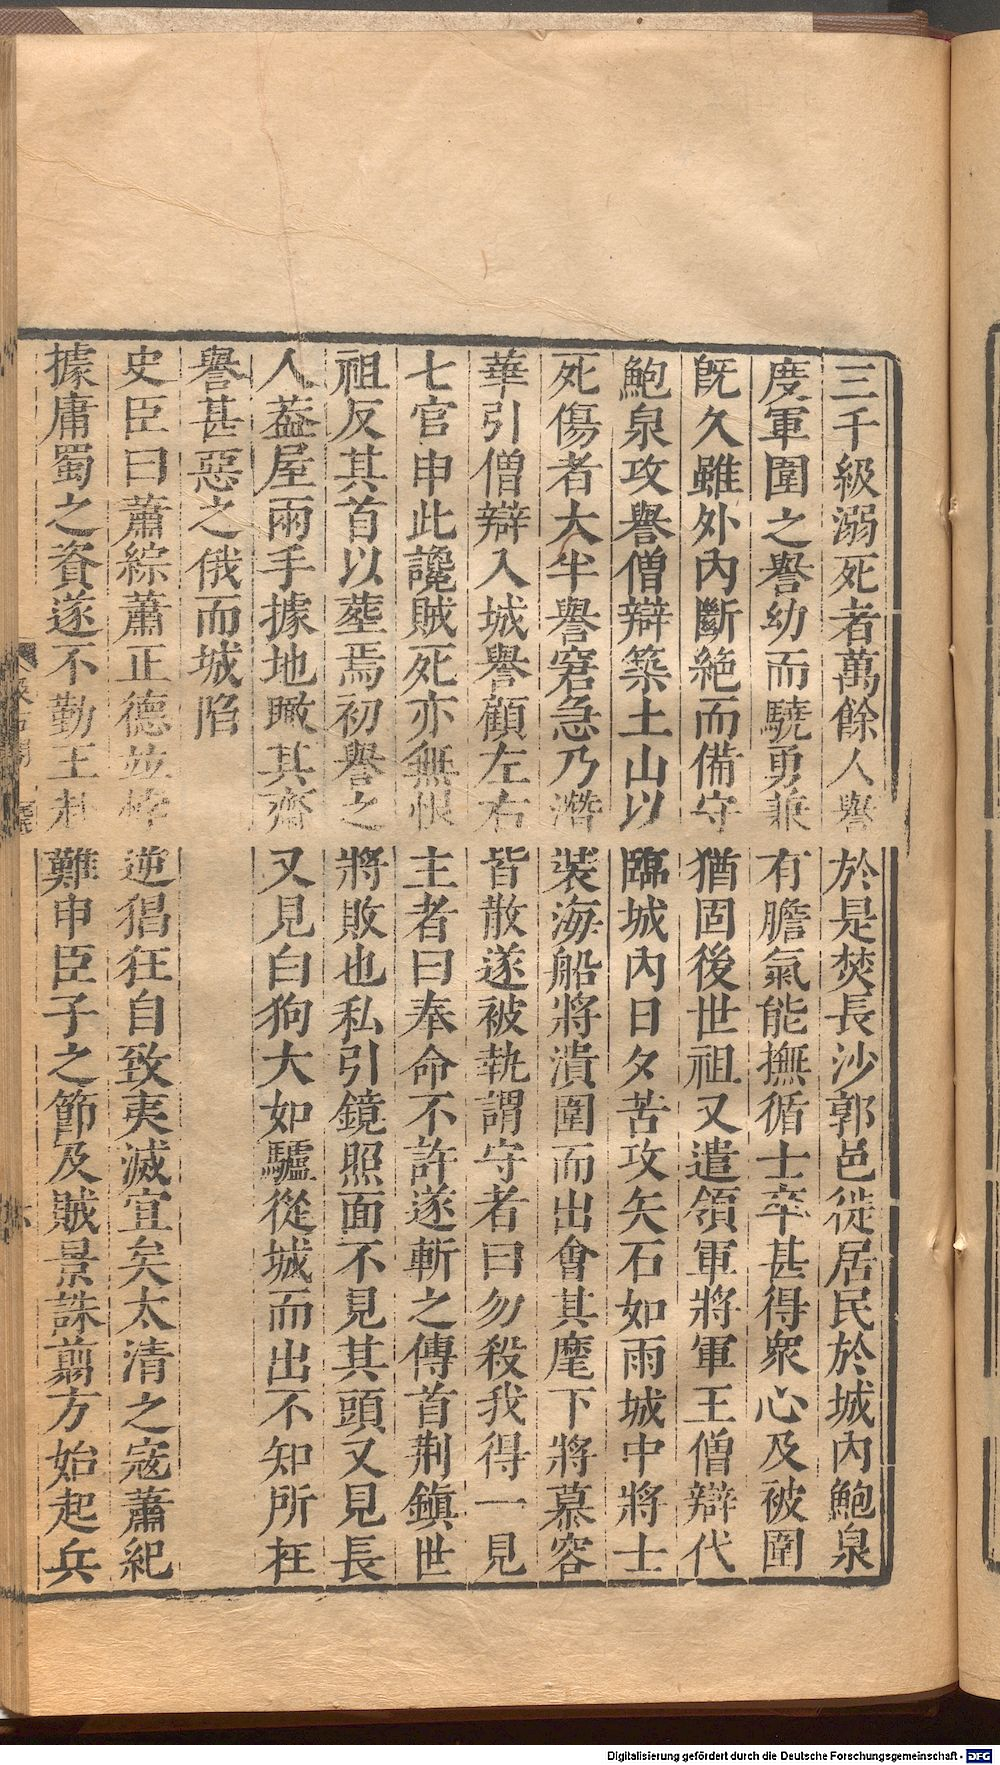 三千級溺死者萬餘人譽於是焚長沙郭邑徙居民於城內鮑泉
度軍圍之譽幼而驍勇兼有膽氣能撫循士卒甚得衆心及被圍
旣久雖外內斷絕而備守猶固後世祖又遣領軍將軍王僧辯代
鮑泉攻譽僧辯築土山以臨城內日夕苦攻矢石如雨城中將士
死傷者大半譽窘急乃潛裝海船將潰圍而出會其麾下將慕容
華引僧辯入城譽顧左右皆散遂被執謂守者曰勿殺我得一見
七官申此讒賊死亦無恨主者曰奉命不許遂斬之傳首荆鎭世
祖反其首以葬焉初譽之將敗也私引鏡照面不見其頭又見長
人葢屋兩手據地瞰其齋又見白狗大如驢從城而出不知所在
譽甚惡之俄而城陷
史臣曰蕭綜蕭正德並悖逆猖狂自致夷滅宜矣太清之寇蕭紀
據庸蜀之資遂不勤王赴難申臣子之節及賊景誅翦方始起兵
Digitalisierung gefördert durch die Deutsche Forschungsgemeinschaft - DFG